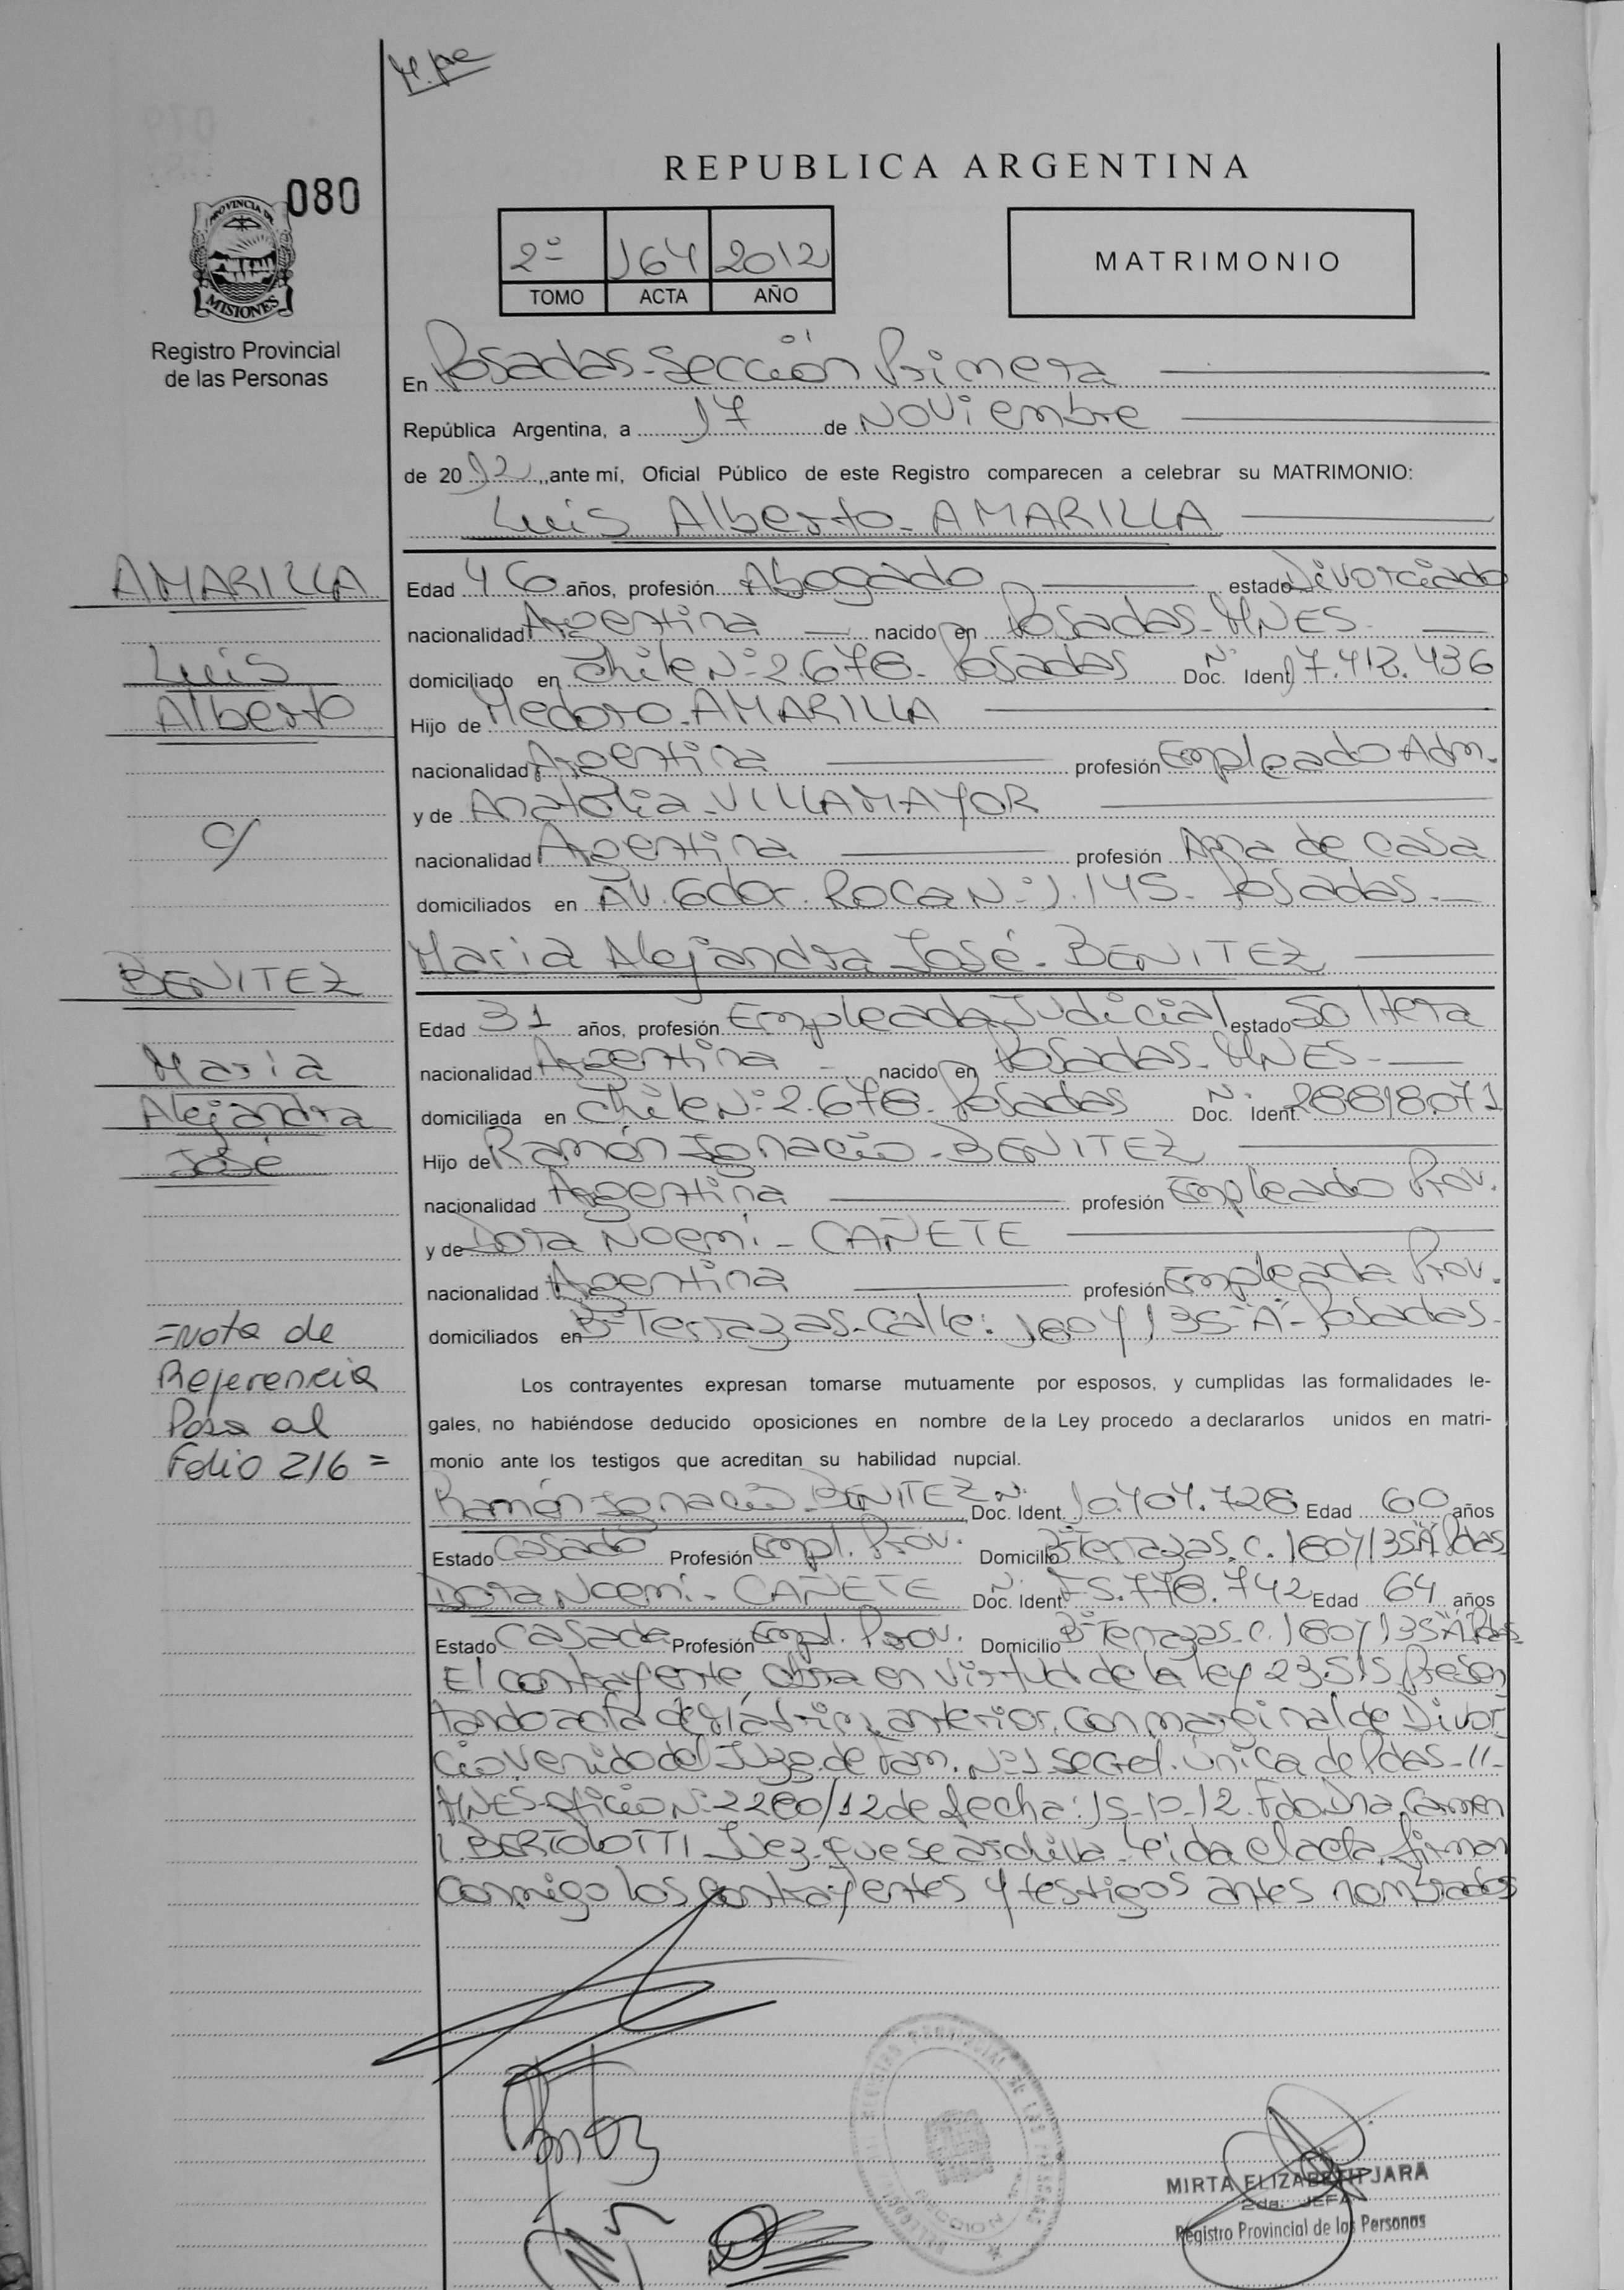 M.pe
080
PROVINCIA DE
MISIONES
Registro Provincial
de las Personas
REPUBLICA ARGENTINA
2º 164 2012
TOMO ACTA AÑO
MATRIMONIO
En Posadas-Sección Primera
República Argentina, a 17 de Noviembre
de 2012,, ante mí, Oficial Público de este Registro comparecen a celebrar su MATRIMONIO:
Luis Alberto-AMARILLA
AMARILLA
Luis
Alberto
c/
BENITEZ
Maria
Alejandra
José
Edad 46 años, profesión Abogado estado Divorciado
nacionalidad Argentina nacido en Posadas-MNES-
domiciliado en Chile Nº 2.678- Posadas Doc. Ident. Nº 17.412.436
Hijo de Medoro-AMARILLA
nacionalidad Argentina profesión Empleado Adm.
y de Anatolia-VILLAMAYOR
nacionalidad Argentina profesión Ama de casa
domiciliados en AV. Gdor. Roca Nº 1.145- Posadas.-
Maria Alejandra José-BENITEZ
Edad 31 años, profesión Empleada Judicial estado Soltera
nacionalidad Argentina - nacido en Posadas-MNES-
domiciliada en Chile Nº 2.678- Posadas Doc. Ident. Nº 28818.071
Hijo de Ramón Ignacio-BENITEZ
nacionalidad Argentina profesión Empleado Prov.
y de Dora Noemi-CAÑETE
nacionalidad Argentina profesión Empleada Prov.
domiciliados en Bº Terrazas-Calle: 180 y 135 "A"-Posadas-
=Nota de
Referencia
Pasa al
Folio 216=
Los contrayentes expresan tomarse mutuamente por esposos, y cumplidas las formalidades le-
gales, no habiéndose deducido oposiciones en nombre de la Ley procedo a declararlos unidos en matri-
monio ante los testigos que acreditan su habilidad nupcial.
Ramón Ignacio-BENITEZ, Doc. Ident. Nº 10.404.728 Edad 60 años
Estado Casado Profesión Empl. Prov. Domicilio Bº Terrazas.C.180 y 135 "A" Pdas
Dora Noemi-CAÑETE Doc. Ident. Nº F5.778.742 Edad 64 años
Estado Casada Profesión Empl. Prov. Domicilio Bº Terrazas-C.180 y 135 "A" Pdas-
El contrayente, obra en virtud de la ley 23515 Presen
tando acta de Matrim. anterior, con marginal de Divor
cio venido del Juzg. de Fam. Nº 1 Secret. única de Pdas-//-
MNES-oficio Nº 2280/12 de fecha: 15-10-12. Fdo. Dra. Carmen
BERTOLOTTI Juez-que se archiva-Leida el acta, firman
conmigo los contrayentes y testigos antes nombrados
REGISTRO PROVINCIAL DE LAS PERSONAS
MIRTA ELIZABETH JARA
2da. JEFA
Registro Provincial de las Personas